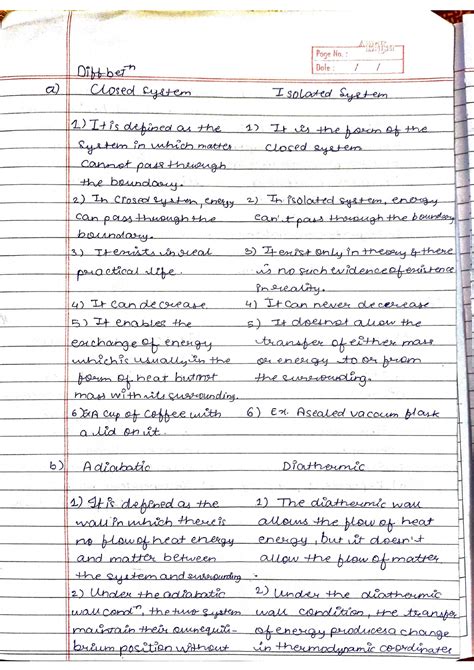 Page No. :
Date : / /
Diff betⁿ
a) Closed System Isolated System
1) It is defined as the 1) It is the form of the
System in which matter closed system
cannot pass through
the boundary.
2) In Closed system, energy 2) In isolated system, energy
can pass through the can't pass through the boundary
boundary.
3) It exists in real 3) It exist only in theory & there
practical life. is no such evidence of existence
in reality.
4) It can decrease. 4) It can never decrease
5) It enables the 5) It does not allow the
exchange of energy transfer of either mass
which is usually in the or energy to or from
form of heat but not the surrounding.
mass with its surrounding.
6) Ex A cup of coffee with 6) Ex. A sealed vaccum flask
a lid on it.
b) Adiabatic Diathermic
1) It is defined as the 1) The diathermic wall
wall in which there is allows the flow of heat
no flow of heat energy energy, but it doesn't
and matter between allow the flow of matter.
the system and surrounding.
2) Under the adiabatic 2) Under the diathermic
wall condⁿ, the two system wall condition, the transfer
maintain their own equili- of energy produces a change
brium position without in thermodynamic coordinates